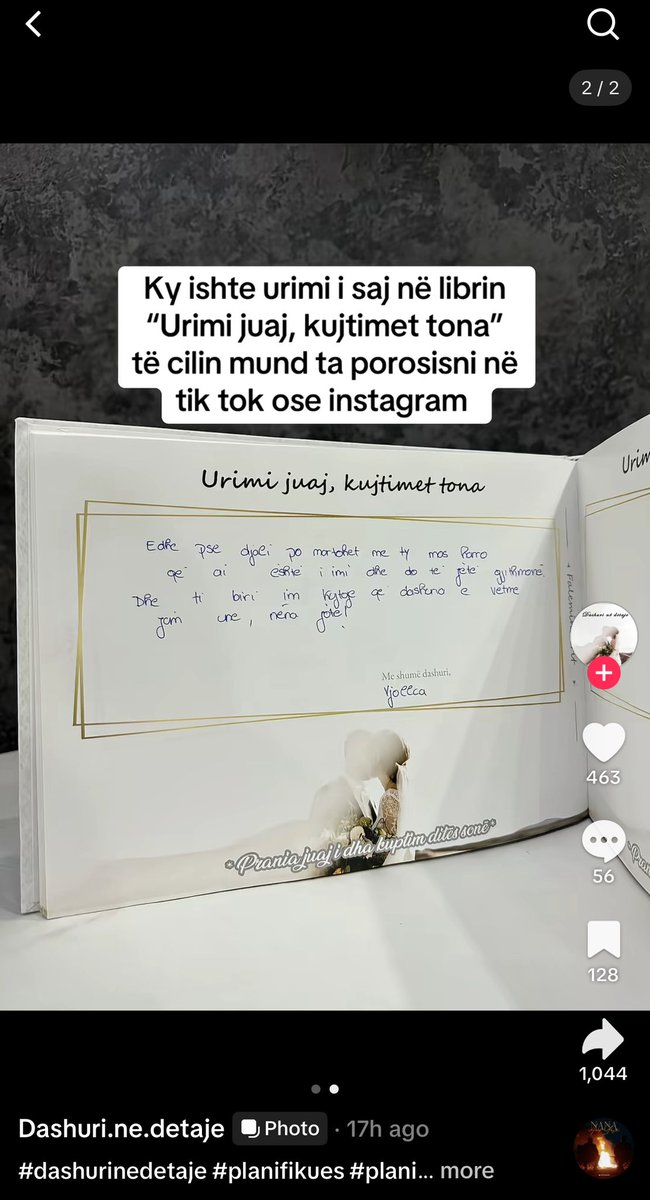 2 / 2
Ky ishte urimi i saj në librin
“Urimi juaj, kujtimet tona”
të cilin mund ta porosisni në
tik tok ose instagram
Urimi juaj, kujtimet tona
Edhe pse djali po martohet me ty mos harro
që ai është i imi dhe do të jetë gjithmonë.
Dhe ti biri im kujtoje që dashuria e vetme
jam une, nëna jote!
Me shumë dashuri,
Vjollca
*Prania juaj i dha kuptim ditës sonë*
Urim
Dashuri në detaje
463
56
128
1,044
Dashuri.ne.detaje Photo · 17h ago
#dashurinedetaje #planifikues #plani... more
NANA